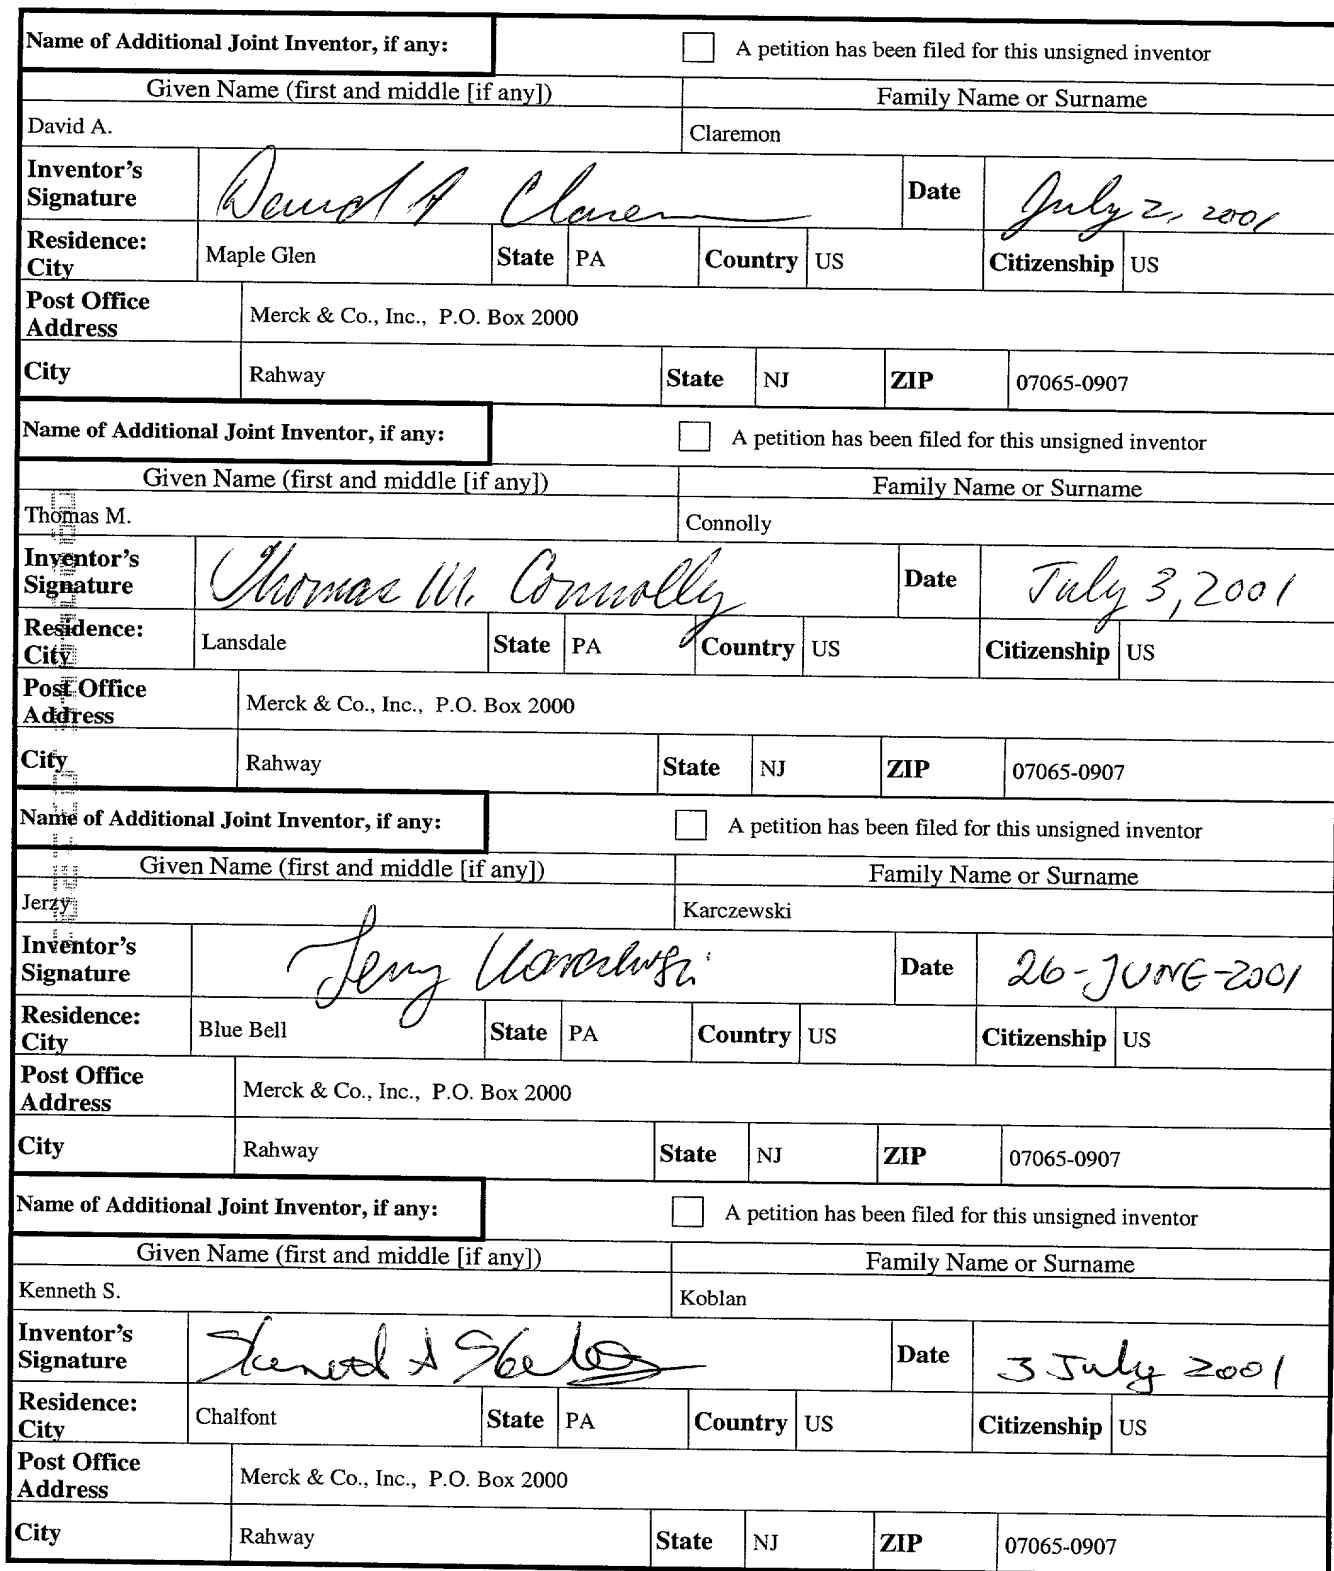 Name of Additional Joint Inventor, if any: A petition has been filed for this unsigned inventor
Given Name (first and middle [if any]) Family Name or Surname
David A. Claremon
Inventor's Signature David A Claremon Date July 2, 2001
Residence: City Maple Glen State PA Country US Citizenship US
Post Office Address Merck & Co., Inc., P.O. Box 2000
City Rahway State NJ ZIP 07065-0907
Name of Additional Joint Inventor, if any: A petition has been filed for this unsigned inventor
Given Name (first and middle [if any]) Family Name or Surname
Thomas M. Connolly
Inventor's Signature Thomas M. Connolly Date July 3, 2001
Residence: City Lansdale State PA Country US Citizenship US
Post Office Address Merck & Co., Inc., P.O. Box 2000
City Rahway State NJ ZIP 07065-0907
Name of Additional Joint Inventor, if any: A petition has been filed for this unsigned inventor
Given Name (first and middle [if any]) Family Name or Surname
Jerzy Karczewski
Inventor's Signature Jerzy Karczewski Date 26-JUNE-2001
Residence: City Blue Bell State PA Country US Citizenship US
Post Office Address Merck & Co., Inc., P.O. Box 2000
City Rahway State NJ ZIP 07065-0907
Name of Additional Joint Inventor, if any: A petition has been filed for this unsigned inventor
Given Name (first and middle [if any]) Family Name or Surname
Kenneth S. Koblan
Inventor's Signature Date 3 July 2001
Residence: City Chalfont State PA Country US Citizenship US
Post Office Address Merck & Co., Inc., P.O. Box 2000
City Rahway State NJ ZIP 07065-0907